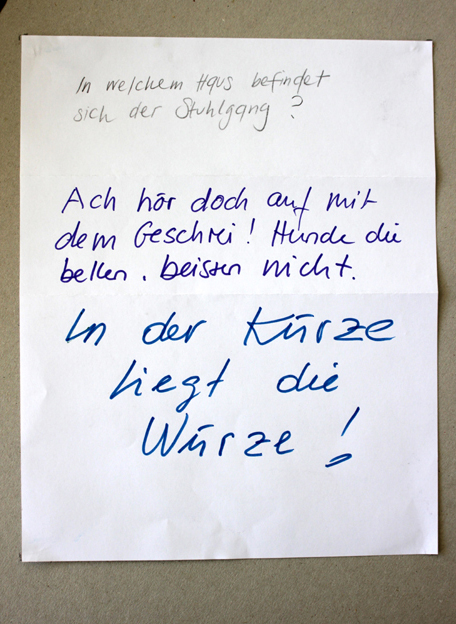 In welchem Haus befindet
sich der Stuhlgang?
Ach hör doch auf mit
dem Geschrei! Hunde die
bellen, beissen nicht.
In der Kürze
liegt die
Würze!